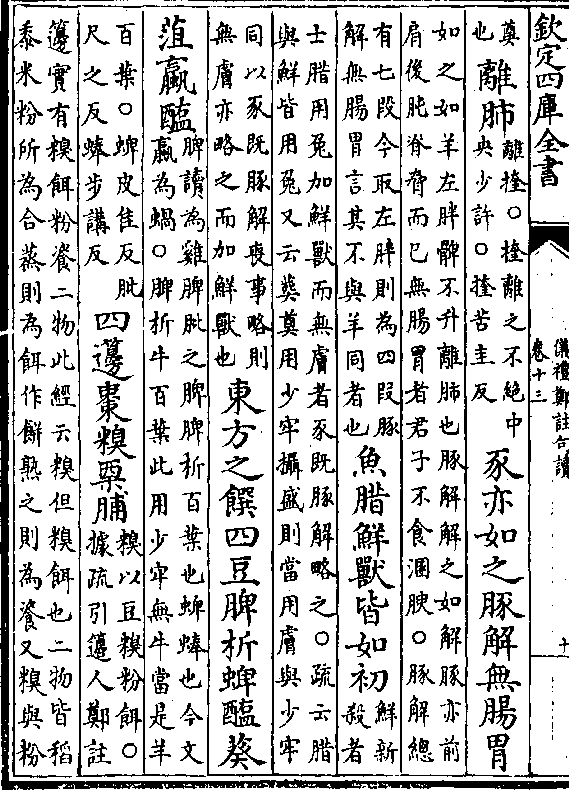 欽定四庫全書
儀禮鄭註句讀
卷十三
十
奠
也
離肺
離㨒○㨒離之不絕中
央少許○㨒苦圭反
豕亦如之豚解無腸胃
如之如羊左胖髀不升離肺也豚解解之如解豚亦前
肩後肫脊脅而已無腸胃者君子不食溷腴○豚解總
有七段今取左胖則為四段豚
解無腸胃言其不與羊同者也
魚腊鮮獸皆如初
鮮新
殺者
士腊用兔加鮮獸而無膚者豕既豚解略之○疏云腊
與鮮皆用兔又云葬奠用少牢攝盛則當用膚與少牢
同以豕既豚解喪事略則
無膚亦略之而加鮮獸也
東方之饌四豆脾析蜱醢葵
菹蠃醢
脾讀為雞脾肶之脾脾析百葉也蜱蜯也今文
蠃為蝸○脾析牛百葉此用少牢無牛當是羊
百葉○蜱皮隹反肶
尺之反蜯步講反
四籩棗糗栗脯
糗以豆糗粉餌○
據疏引籩人鄭註
籩實有糗餌粉餈二物此經云糗但糗餌也二物皆稻
黍米粉所為合蒸則為餌作餅熟之則為餈又糗與粉